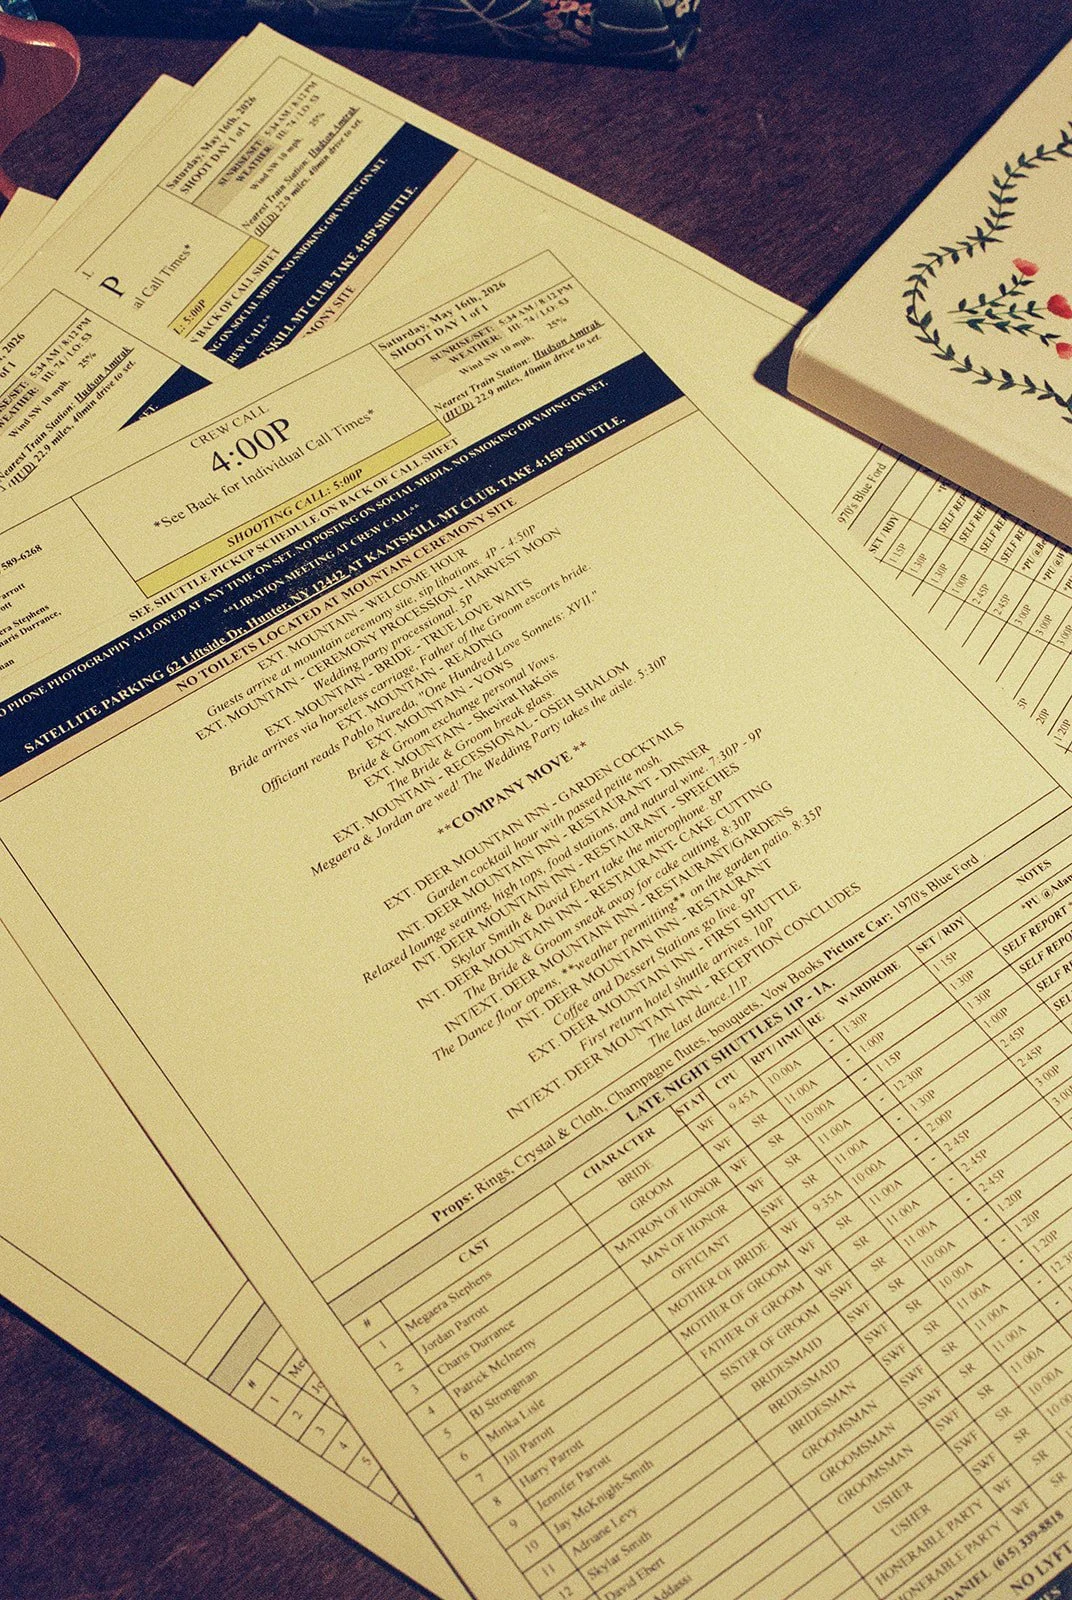 Saturday, May 16th, 2026
SHOOT DAY 1 of 1
SUNRISE/SET: 5:34 AM / 8:12 PM
WEATHER: HI: 74 / LO: 53
Wind SW 10 mph, 25%
Nearest Train Station: Hudson Amtrak
(HUD) 22.9 miles, 40min drive to set.
P
al Call Times*
L: 5:00P
BACK OF CALL SHEET
NG ON SOCIAL MEDIA. NO SMOKING OR VAPING ON SET.
REW CALL**
TSKILL MT CLUB. TAKE 4:15P SHUTTLE.
MONY SITE
2026
of 1
SE/SET: 5:34 AM / 8:12 PM
WEATHER: HI: 74 / LO: 53
Wind SW 10 mph, 25%
Nearest Train Station: Hudson Amtrak
(HUD) 22.9 miles, 40min drive to set.
SET.
CREW CALL
4:00P
*See Back for Individual Call Times*
SHOOTING CALL: 5:00P
SEE SHUTTLE PICKUP SCHEDULE ON BACK OF CALL SHEET
Saturday, May 16th, 2026
SHOOT DAY 1 of 1
SUNRISE/SET: 5:34 AM / 8:12 PM
WEATHER: HI: 74 / LO: 53
Wind SW 10 mph, 25%
Nearest Train Station: Hudson Amtrak
(HUD) 22.9 miles, 40min drive to set.
589-6268
arrott
ott
aera Stephens
haris Durrance,
man
O PHONE PHOTOGRAPHY ALLOWED AT ANY TIME ON SET. NO POSTING ON SOCIAL MEDIA. NO SMOKING OR VAPING ON SET.
**LIBATION MEETING AT CREW CALL**
SATELLITE PARKING 62 Liftside Dr, Hunter, NY 12442 AT KAATSKILL MT CLUB. TAKE 4:15P SHUTTLE.
NO TOILETS LOCATED AT MOUNTAIN CEREMONY SITE
EXT. MOUNTAIN - WELCOME HOUR
Guests arrive at mountain ceremony site, sip libations. 4P - 4:50P
EXT. MOUNTAIN - CEREMONY PROCESSION - HARVEST MOON
Wedding party processional. 5P
EXT. MOUNTAIN - BRIDE - TRUE LOVE WAITS
Bride arrives via horseless carriage, Father of the Groom escorts bride.
EXT. MOUNTAIN - READING
Officiant reads Pablo Nureda, "One Hundred Love Sonnets: XVII."
EXT. MOUNTAIN - VOWS
Bride & Groom exchange personal Vows.
EXT. MOUNTAIN - Shevirat HaKois
The Bride & Groom break glass.
EXT. MOUNTAIN - RECESSIONAL - OSEH SHALOM
Megaera & Jordan are wed! The Wedding Party takes the aisle. 5:30P
**COMPANY MOVE **
EXT. DEER MOUNTAIN INN - GARDEN COCKTAILS
Garden cocktail hour with passed petite nosh.
INT. DEER MOUNTAIN INN - RESTAURANT - DINNER
Relaxed lounge seating, high tops, food stations, and natural wine. 7:30P - 9P
INT. DEER MOUNTAIN INN - RESTAURANT - SPEECHES
Skylar Smith & David Ebert take the microphone. 8P
INT. DEER MOUNTAIN INN - RESTAURANT- CAKE CUTTING
The Bride & Groom sneak away for cake cutting. 8:30P
INT/EXT. DEER MOUNTAIN INN - RESTAURANT/GARDENS
The Dance floor opens, **weather permitting** on the garden patio. 8:35P
INT. DEER MOUNTAIN INN - RESTAURANT
Coffee and Dessert Stations go live. 9P
EXT. DEER MOUNTAIN INN - FIRST SHUTTLE
First return hotel shuttle arrives. 10P
INT/EXT. DEER MOUNTAIN INN - RECEPTION CONCLUDES
The last dance.11P.
Props: Rings, Crystal & Cloth, Champagne flutes, bouquets, Vow Books Picture Car: 1970's Blue Ford
LATE NIGHT SHUTTLES 11P - 1A.
# CAST CHARACTER STAT CPU RPT/ HMU RE WARDROBE SET / RDY NOTES
1 Megaera Stephens BRIDE WF 9:45A 10:00A - 1:30P 1:15P *PU @Adam
2 Jordan Parrott GROOM WF SR 11:00A - 1:00P 1:30P SELF REPORT *
3 Charis Durrance MATRON OF HONOR WF SR 10:00A - 1:15P 1:30P SELF REPOR
4 Patrick McInerny MAN OF HONOR WF SR 11:00A - 12:30P 1:00P SELF REP
5 BJ Strongman OFFICIANT SWF SR 11:00A - 1:30P 2:45P
6 Minka Lisle MOTHER OF BRIDE WF 9:35A 10:00A - 2:00P 2:45P
7 Jill Parrott MOTHER OF GROOM WF SR 11:00A - 2:45P 3:00P
8 Harry Parrott FATHER OF GROOM SWF SR 11:00A - 2:45P
9 Jennifer Parrott SISTER OF GROOM SWF SR 11:00A - 2:45P
10 Jay McKnight-Smith BRIDESMAID SWF SR 10:00A - 1:20P
11 Adriane Levy BRIDESMAID SWF SR 10:00A - 1:20P
12 Skylar Smith BRIDESMAN SWF SR 11:00A - 1:20P
David Ebert GROOMSMAN SWF SR 11:00A
Addassi GROOMSMAN SWF SR 11:00A
USHER SWF SR
USHER SWF SR
HONORABLE PARTY WF
HONORABLE PARTY WF
DANIEL (615) 339-8818
NO LYFT
970's Blue Ford
SET / RDY
1:15P
1:30P
1:00P
2:45P
2:45P
3:00P
3:00P
SELF REP
SELF REPO
SELF R
5P
20P
1:20P
#
1 Me
2 Jo
3
4
5